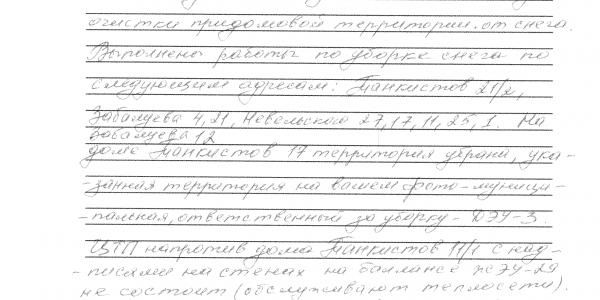 очистки придомовой территории от снега.
Выполнены работы по уборке снега по
следующим адресам: Танкистов 21/2,
Забалуева 4, 21, Невельского 27, 17, 11, 25, 1. На
Забалуева 12
доме Танкистов 17 территория убрана, ука-
-занная территория на вашем фото - муници-
-пальная, ответственный за уборку - ДЭУ-3.
ЦТП напротив дома Танкистов 11/1 с над-
-писями на стенах на балансе ЖЭУ-29
не состоит (обслуживают теплосети).